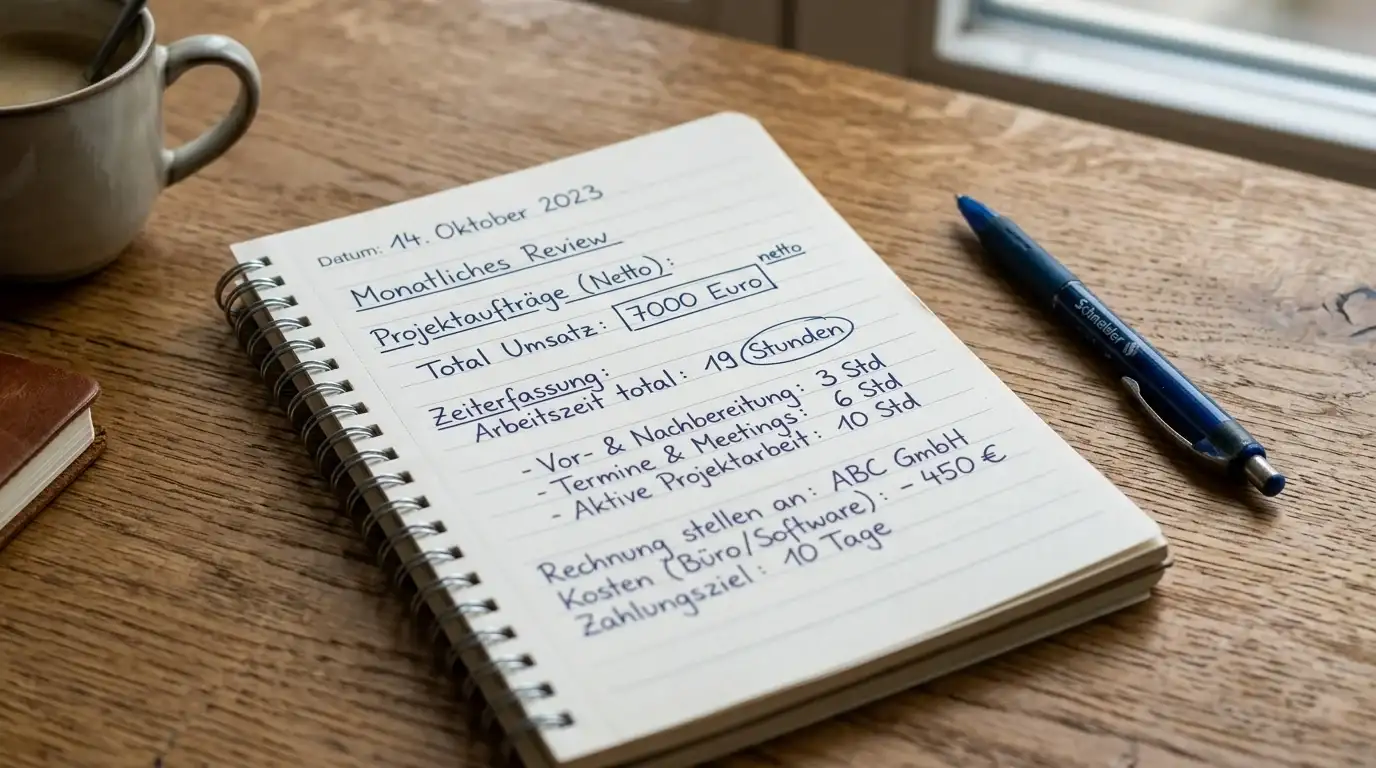 Datum: 14. Oktober 2023
Monatliches Review
Projektaufträge (Netto):
Total Umsatz: 7000 Euro netto
Zeiterfassung:
Arbeitszeit total: 19 Stunden
- Vor- & Nachbereitung: 3 Std
- Termine & Meetings: 6 Std
- Aktive Projektarbeit: 10 Std
Rechnung stellen an: ABC GmbH
Kosten (Büro/Software): - 450 €
Zahlungsziel: 10 Tage
Schneider